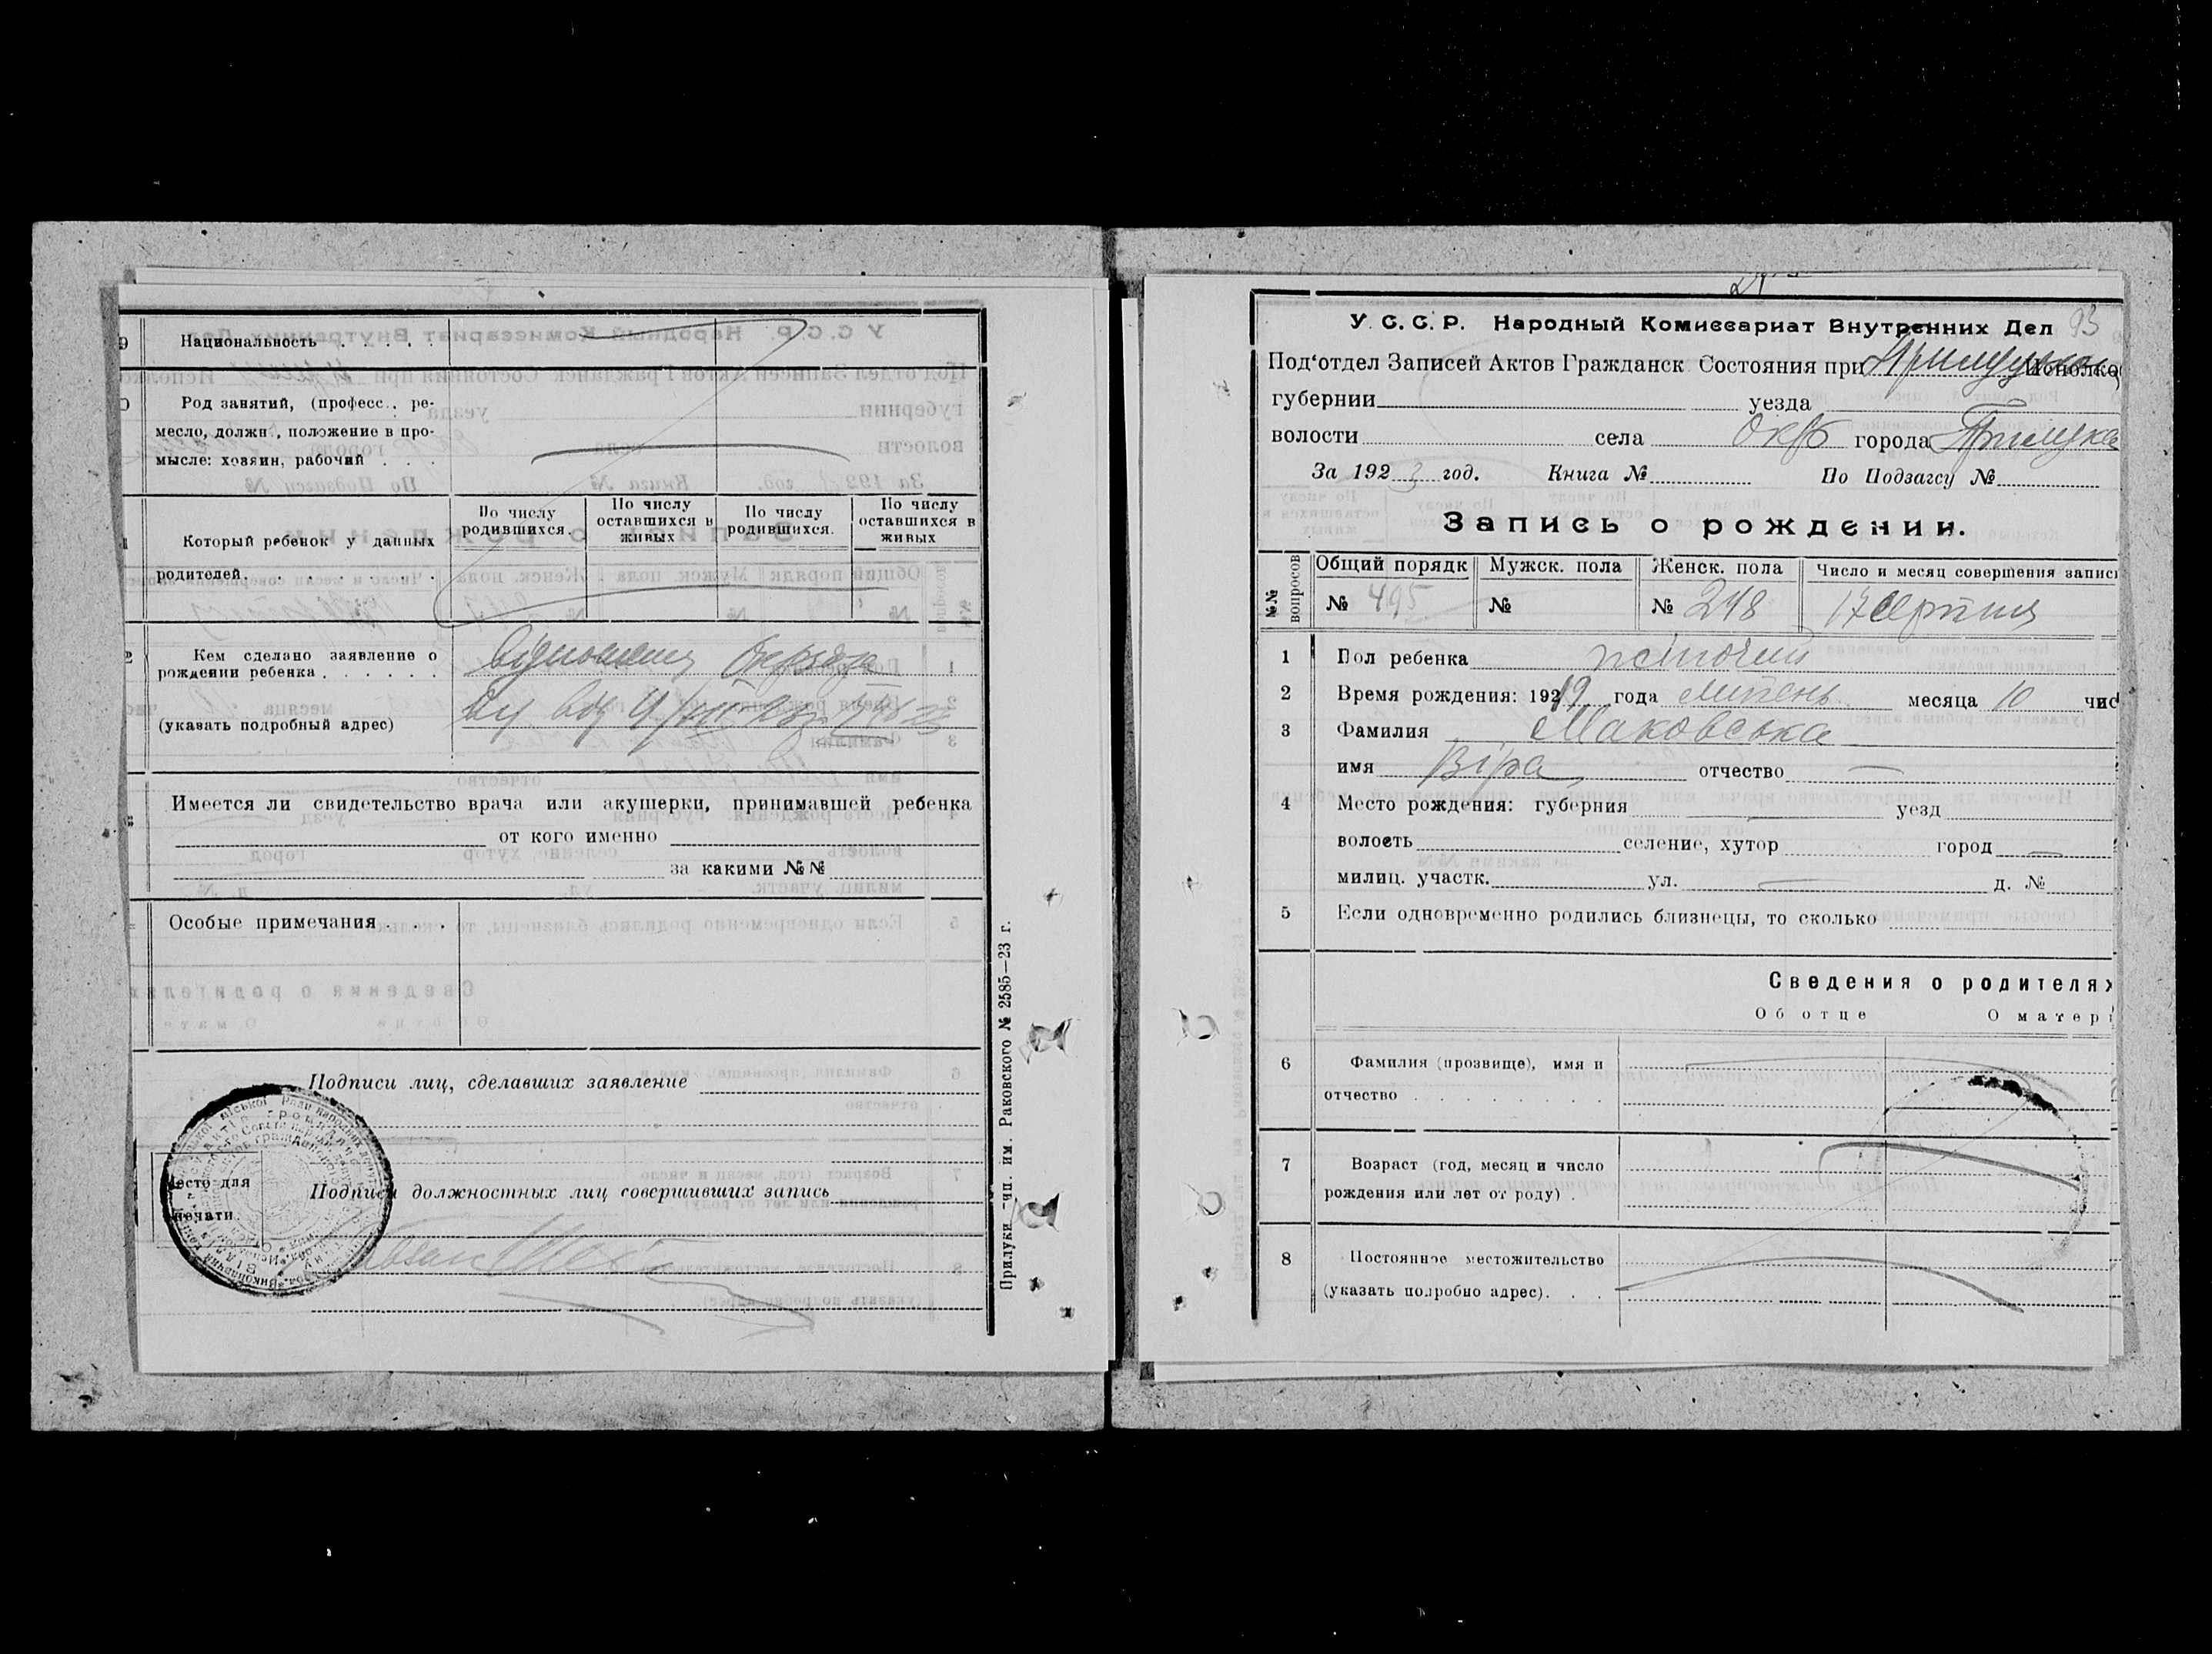 9 Национальность . . . . .
Род занятий, (професс., ре-
месло, должн., положение в про-
мысле: хозяин, рабочий . . .
Который ребенок у данных
родителей. . . . . . . .
По числу родившихся.
По числу оставшихся в живых
По числу родившихся.
По числу оставшихся в живых
2 Кем сделано заявление о
рождении ребенка . . . . . .
(указать подробный адрес)
Имеется ли свидетельство врача или акушерки, принимавшей ребенка
от кого именно
за какими №№
Особые примечания . . .
Подписи лиц, сделавших заявление
Место для
печати.
Подписи должностных лиц совершивших запись
Прилуки тип. им. Раковского № 2585—23 г.
93
У. С. С. Р. Народный Комиссариат Внутренних Дел
Под'отдел Записей Актов Гражданск Состояния при
губернии уезда
волости села Окр города Прилука
За 1923 год. Книга № По Подзагсу №
Запись о рождении.
№№ вопросов
Общий порядк Мужск. пола Женск. пола Число и месяц совершения записи
№ 495 № № 248 17 серпня
1 Пол ребенка жіночий
2 Время рождения: 1919 года липень месяца 10 чис
3 Фамилия Маковська
имя Віра отчество —
4 Место рождения: губерния уезд
волость селение, хутор город —
милиц. участк. ул. — д. №
5 Если одновременно родились близнецы, то сколько
Сведения о родителях
Об отце О матери
6 Фамилия (прозвище), имя и
отчество . . . . . . . . .
7 Возраст (год, месяц и число
рождения или лет от роду) .
8 Постоянное местожительство
(указать подробно адрес). . .